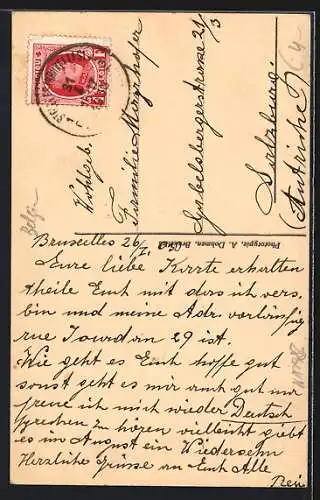 Wohlgeb.
Familie
Gabelsbergerstrasse 21/3
Salzburg.
(Autriche)
Phototypie, A. Dohmen,
Belgie
Bruxelles 26/
Eure liebe Karte erhalten
theile Euch mit dass ich
bin und meine Adr. vorläufig
rue Jourdan 29 ist.
Wie geht es Euch hoffe gut
sonst geht es mir auch gut nur
freue ich mich wieder Deutsch
sprechen zu hören vielleicht giebt
es im August ein Wiedersehn
Herzliche Grüsse an Euch Alle